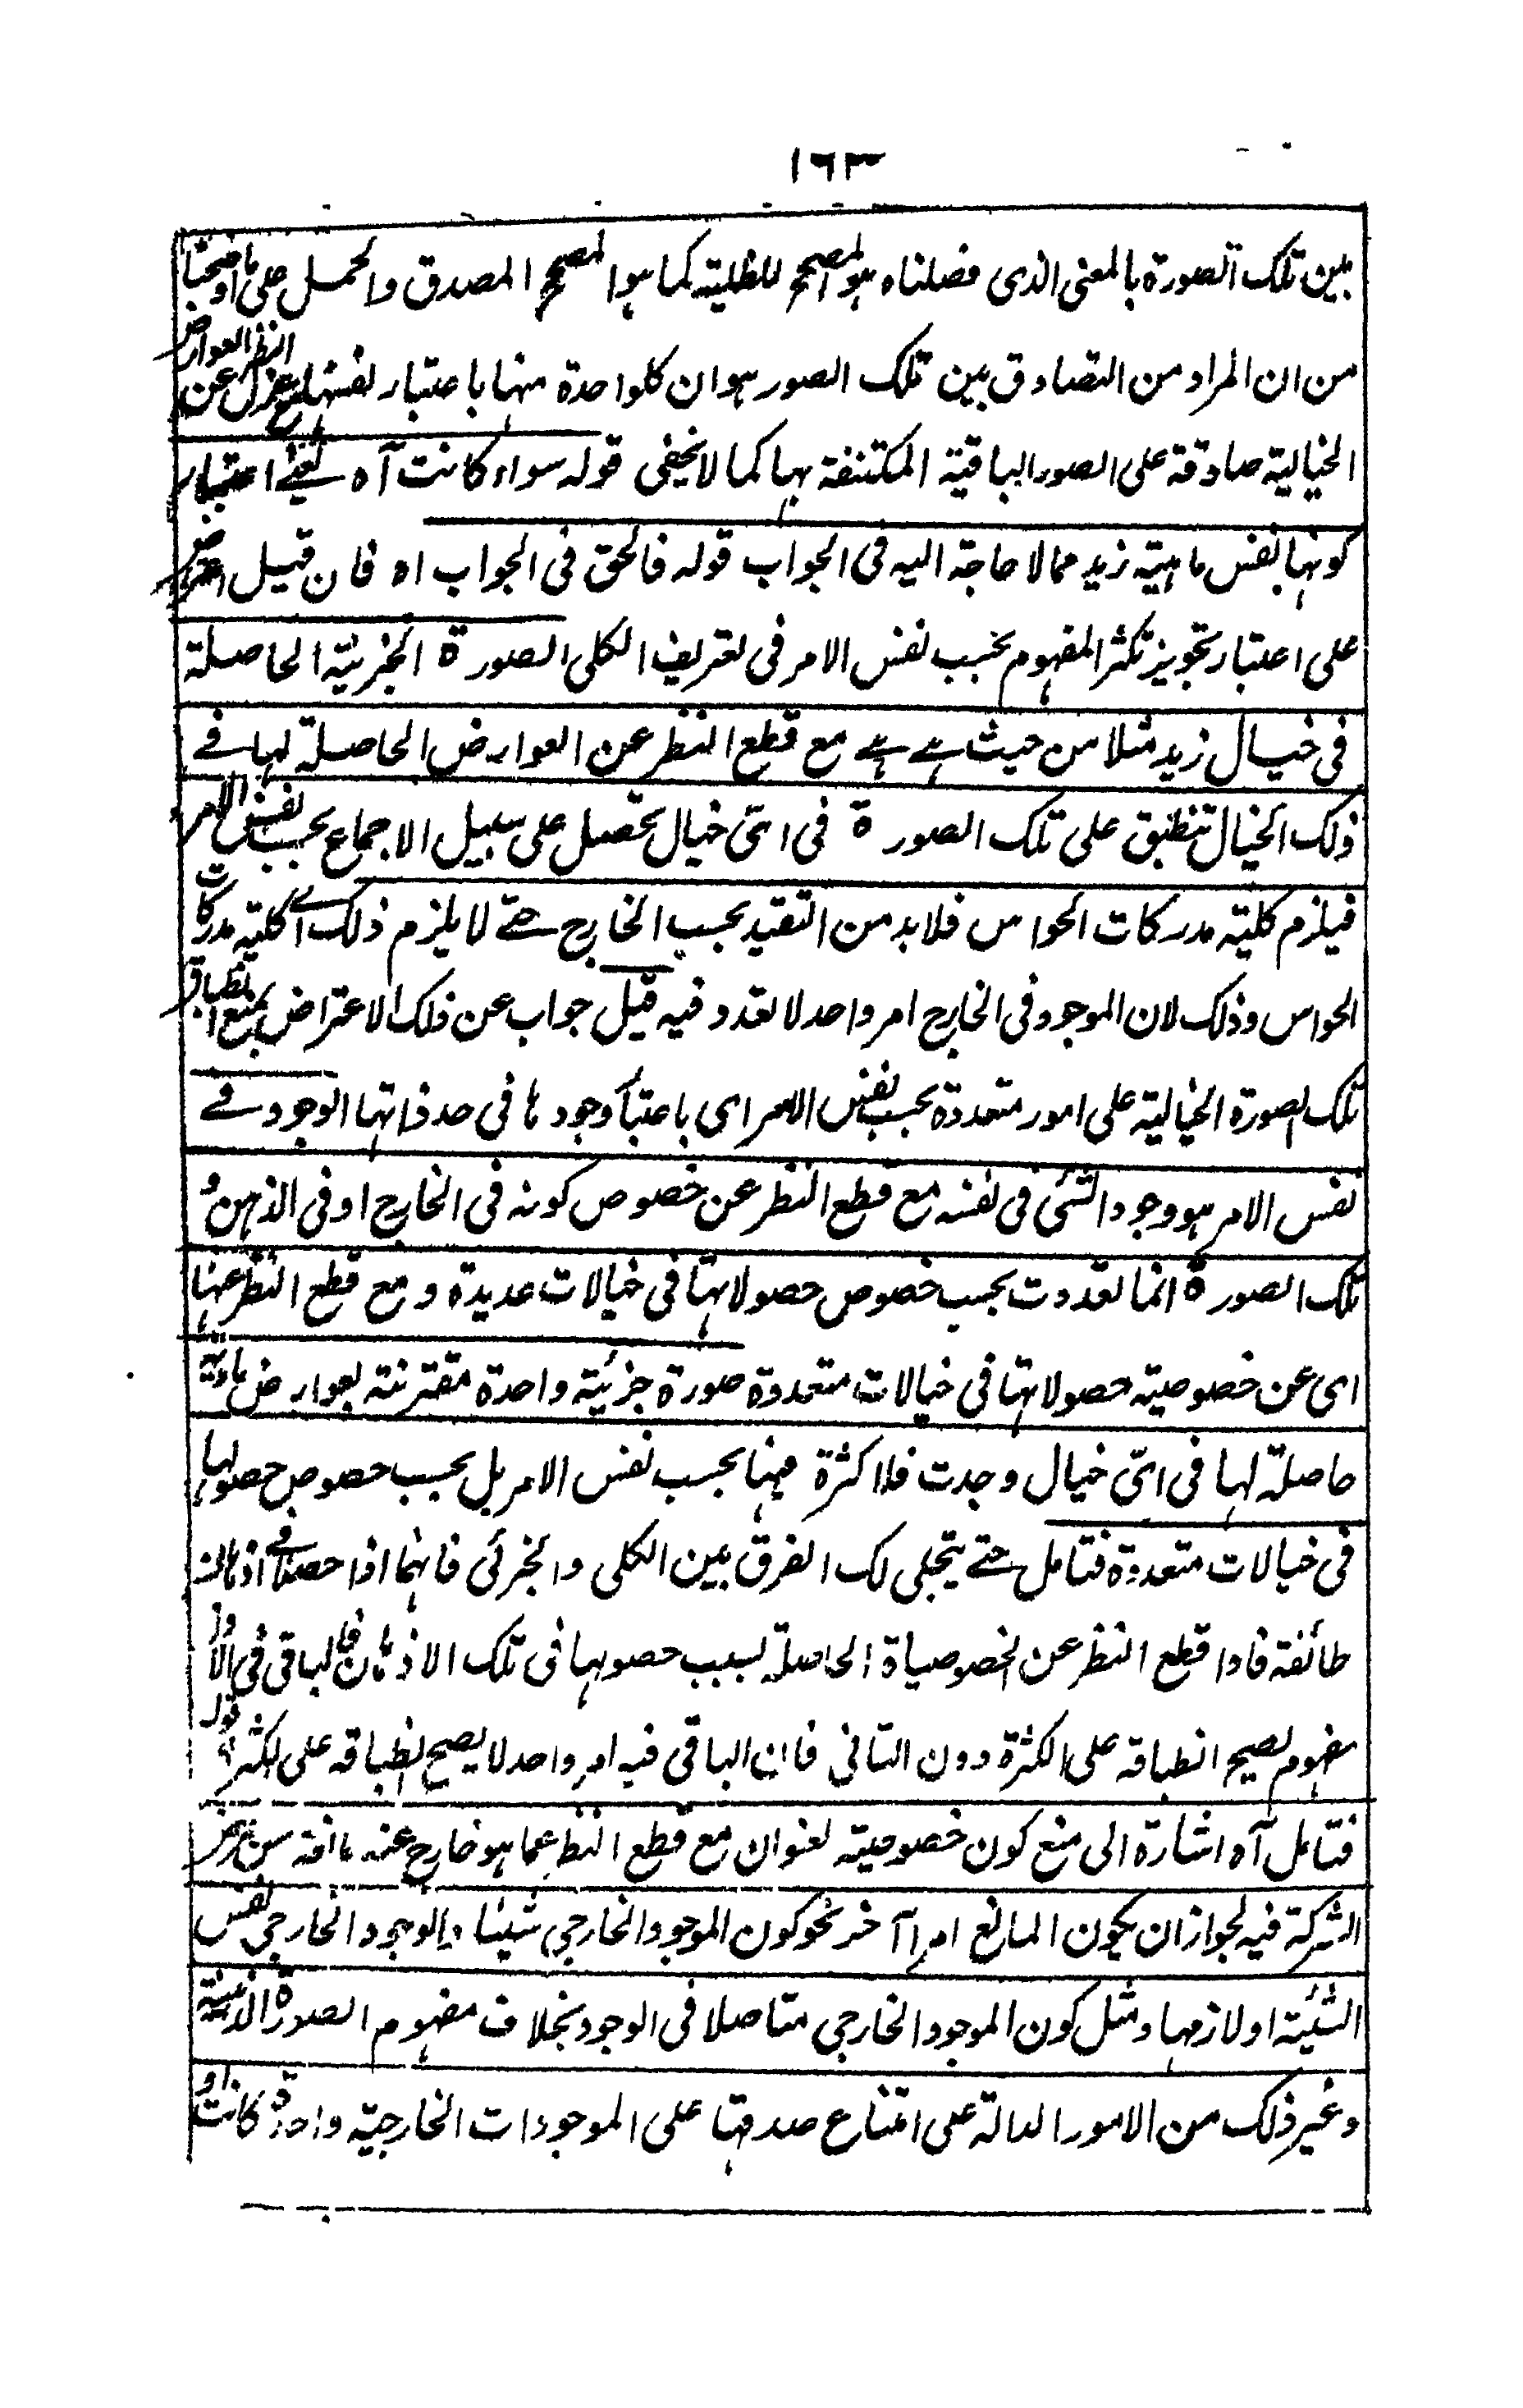 ١٦٣
بين تلك الصورة بالمعنى الذى فصلناه هو المصحح للظلية كما هو المصحح المصدق والحمل على ما اوضحنا
من ان المراد من التصادق بين تلك الصور هو ان كلواحدة منها باعتبار نفسها مع عزل النظر عن العوارض
الخيالية صادقة على الصور الباقية المكتنفة بها كما لا يخفى قوله سواء كانت آه يعنے اعتبار
كونها نفس ماهية زيد مما لا حاجة اليه فى الجواب قوله فالحق فى الجواب اه فان قيل اعترض
على اعتبار تجويز تكثر المفهوم بحسب نفس الامر فى تعريف الكلى الصورة الجزئية الحاصلة
فى خيال زيد مثلا من حيث هے هے مع قطع النظر عن العوارض الحاصلة لها فے
ذلك الخيال تنطبق على تلك الصورة فى اىّ خيال تحصل على سبيل الاجماع بحسب نفس الامر
فيلزم كلية مدركات الحواس فلابد من التقييد بحسب الخارج حتے لا يلزم ذلك اے كلية مدركات
الحواس وذلك لان الموجود فى الخارج امر واحد لا تعدد فيه قيل جواب عن ذلك الاعتراض بمنع انطباق
تلك الصورة الخيالية على امور متعددة بحسب نفس الامر اى باعتبار وجودها فى حد ذاتها الوجود فے
نفس الامر هو وجود الشئ فى نفسه مع قطع النظر عن خصوص كونه فى الخارج او فى الذهن و
تلك الصورة انما تعددت بحسب خصوص حصولاتها فى خيالات عديدة ومع قطع النظر عنها
اى عن خصوصية حصولاتها فى خيالات متعددة صورة جزئية واحدة مقترنة بعوارض مادية
حاصلة لها فى اىّ خيال وجدت فلا كثرة فيها بحسب نفس الامر بل بحسب خصوص حصولها
فى خيالات متعددة فتامل حتے يتجلى لك الفرق بين الكلى والجزئى فانهما اذا حصلا فے اذهان
طائفة فاذا قطع النظر عن الخصوصياة الحاصلة بسبب حصولها فى تلك الاذهان فالباقى فى الاول
مفهوم يصح انطباقه على الكثرة دون الثانى فان الباقى فيه امر واحد لا يصح انطباقه على الكثرة قوله
فتامل آه اشارة الى منع كون خصوصية العنوان مع قطع النظر عما هو خارج عنه مانعة من تجويز
الشركة فيه لجواز ان يكون المانع امرا آخر نحو كون الموجود الخارجى شيئا والوجود الخارجى نفس
الشيئية او لازمها ومثل كون الموجود الخارجى متاصلا فى الوجود بخلاف مفهوم الصورة الذهنية
وغير ذلك من الامور الدالة على امتناع صدقها على الموجودات الخارجية واحدة كانت او